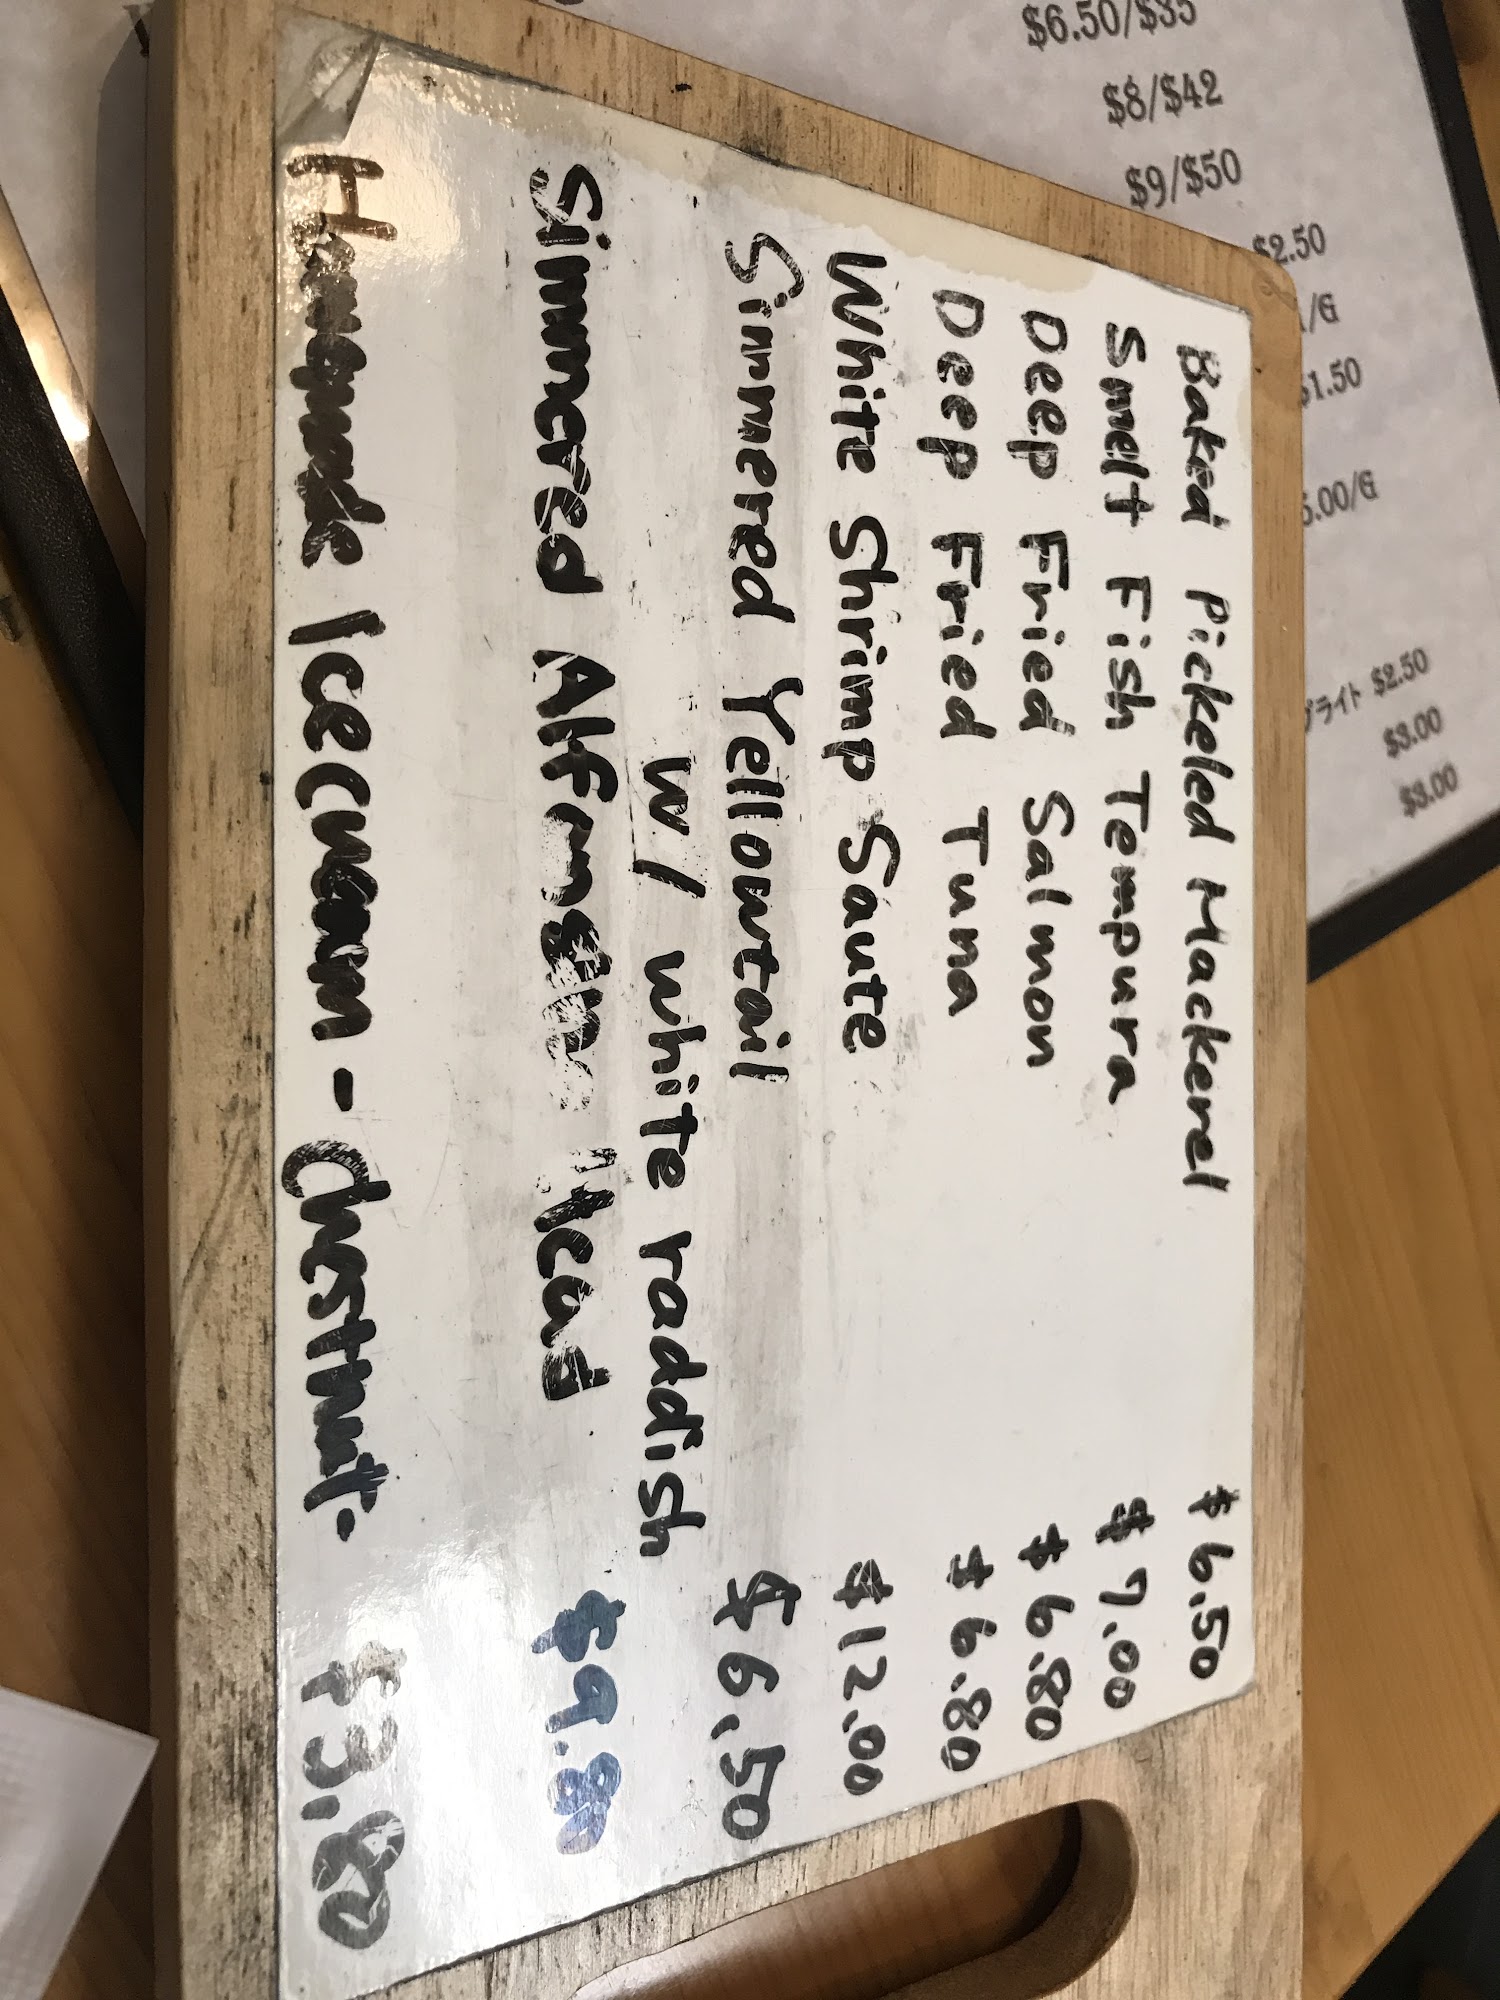 Baked Pickeled Mackerel $6.50
Smelt Fish Tempura $7.00
Deep Fried Salmon $6.80
Deep Fried Tuna $6.80
White Shrimp Saute $12.00
Simmered Yellowtail $6.50
w/ white raddish
Simmered Alfonsino Head $9.80
Homemade Icecream - Chestnut. $3.80
$6.50/$35
$8/$42
$9/$50
$2.50
/G
$1.50
5.00/G
プライト $2.50
$3.00
$3.00